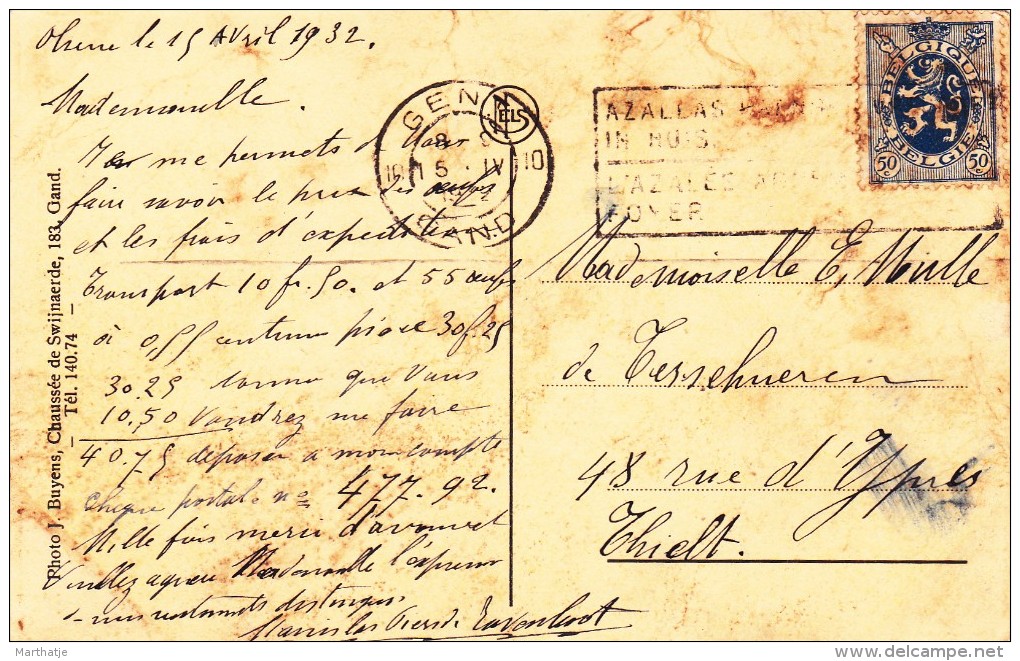 Olsene le 15 Avril 1932.
Mademoiselle.
me permets de Vous
faire savoir le prix des œufs
et les frais d'expedition
Transport 10 fr. 50. et 55 œufs
à 0,55 centime pièce 30f.25
30.25 somme que Vous
10,50 Voudrez me faire
40.75 déposer à mon compte
cheque postal. no 477.92.
Mille fois merci d'avance et
Veuillez agréer Mademoiselle l'expression
mes sentiments distingués
Stanislas
Photo J. Buyens, Chaussée de Swijnaerde, 183, Gand.
— Tél. 140.74 —
GENT
ELS
8-9
10 15 IV 10
1932
GAND
AZALEAS
IN HUIS
L'AZALÉE AU
FOYER
BELGIQUE
BELGIË
50c 50c
Mademoiselle E. Mulle
de Terschueren
48 rue d'Ypres
Thielt.
Marthatje
www.delcampe.net